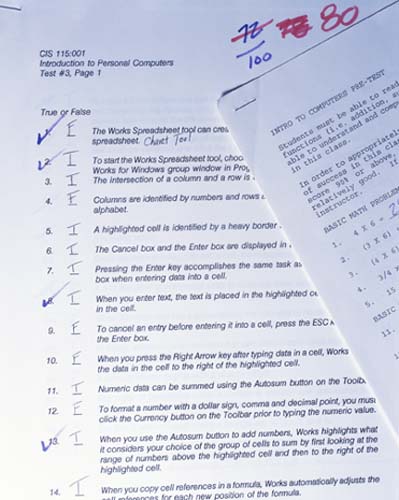 72 78 80
100
CIS 115:001
Introduction to Personal Computers
Test #3, Page 1
True or False
1. F The Works Spreadsheet tool can
spreadsheet. Chart Tool
2. T To start the Works Spreadsheet tool,
Works for Windows group window in
3. T The intersection of a column and a row is
4. F Columns are identified by numbers and rows
alphabet.
5. T A highlighted cell is identified by a heavy border
6. T The Cancel box and the Enter box are displayed in
7. T Pressing the Enter key accomplishes the same task as
box when entering data into a cell.
8. T When you enter text, the text is placed in the highlighted
in the cell.
9. F To cancel an entry before entering it into a cell, press the ESC
the Enter box.
10. F When you press the Right Arrow key after typing data in a cell, Works
the data in the cell to the right of the highlighted cell.
11. T Numeric data can be summed using the Autosum button on the
12. F To format a number with a dollar sign, comma and decimal point, you must
click the Currency button on the Toolbar prior to typing the numeric value.
13. T When you use the Autosum button to add numbers, Works highlights what
it considers your choice of the group of cells to sum by first looking at the
range of numbers above the highlighted cell and then to the right of the
highlighted cell.
14. T When you copy cell references in a formula, Works automatically adjusts the
cell references for each new position of the formula.
INTRO TO COMPUTERS PRE-TEST
Students must be able to read
functions (i.e. addition,
able to understand and
in this class.
In order to appropriately
of success in this
score 95% or above,
relatively good. If
instructor.
BASIC MATH
1. 4 X 6 =
2. (3 X 6)
3. (4 X 6)
4. 3/4
5. 15
BASIC
11.